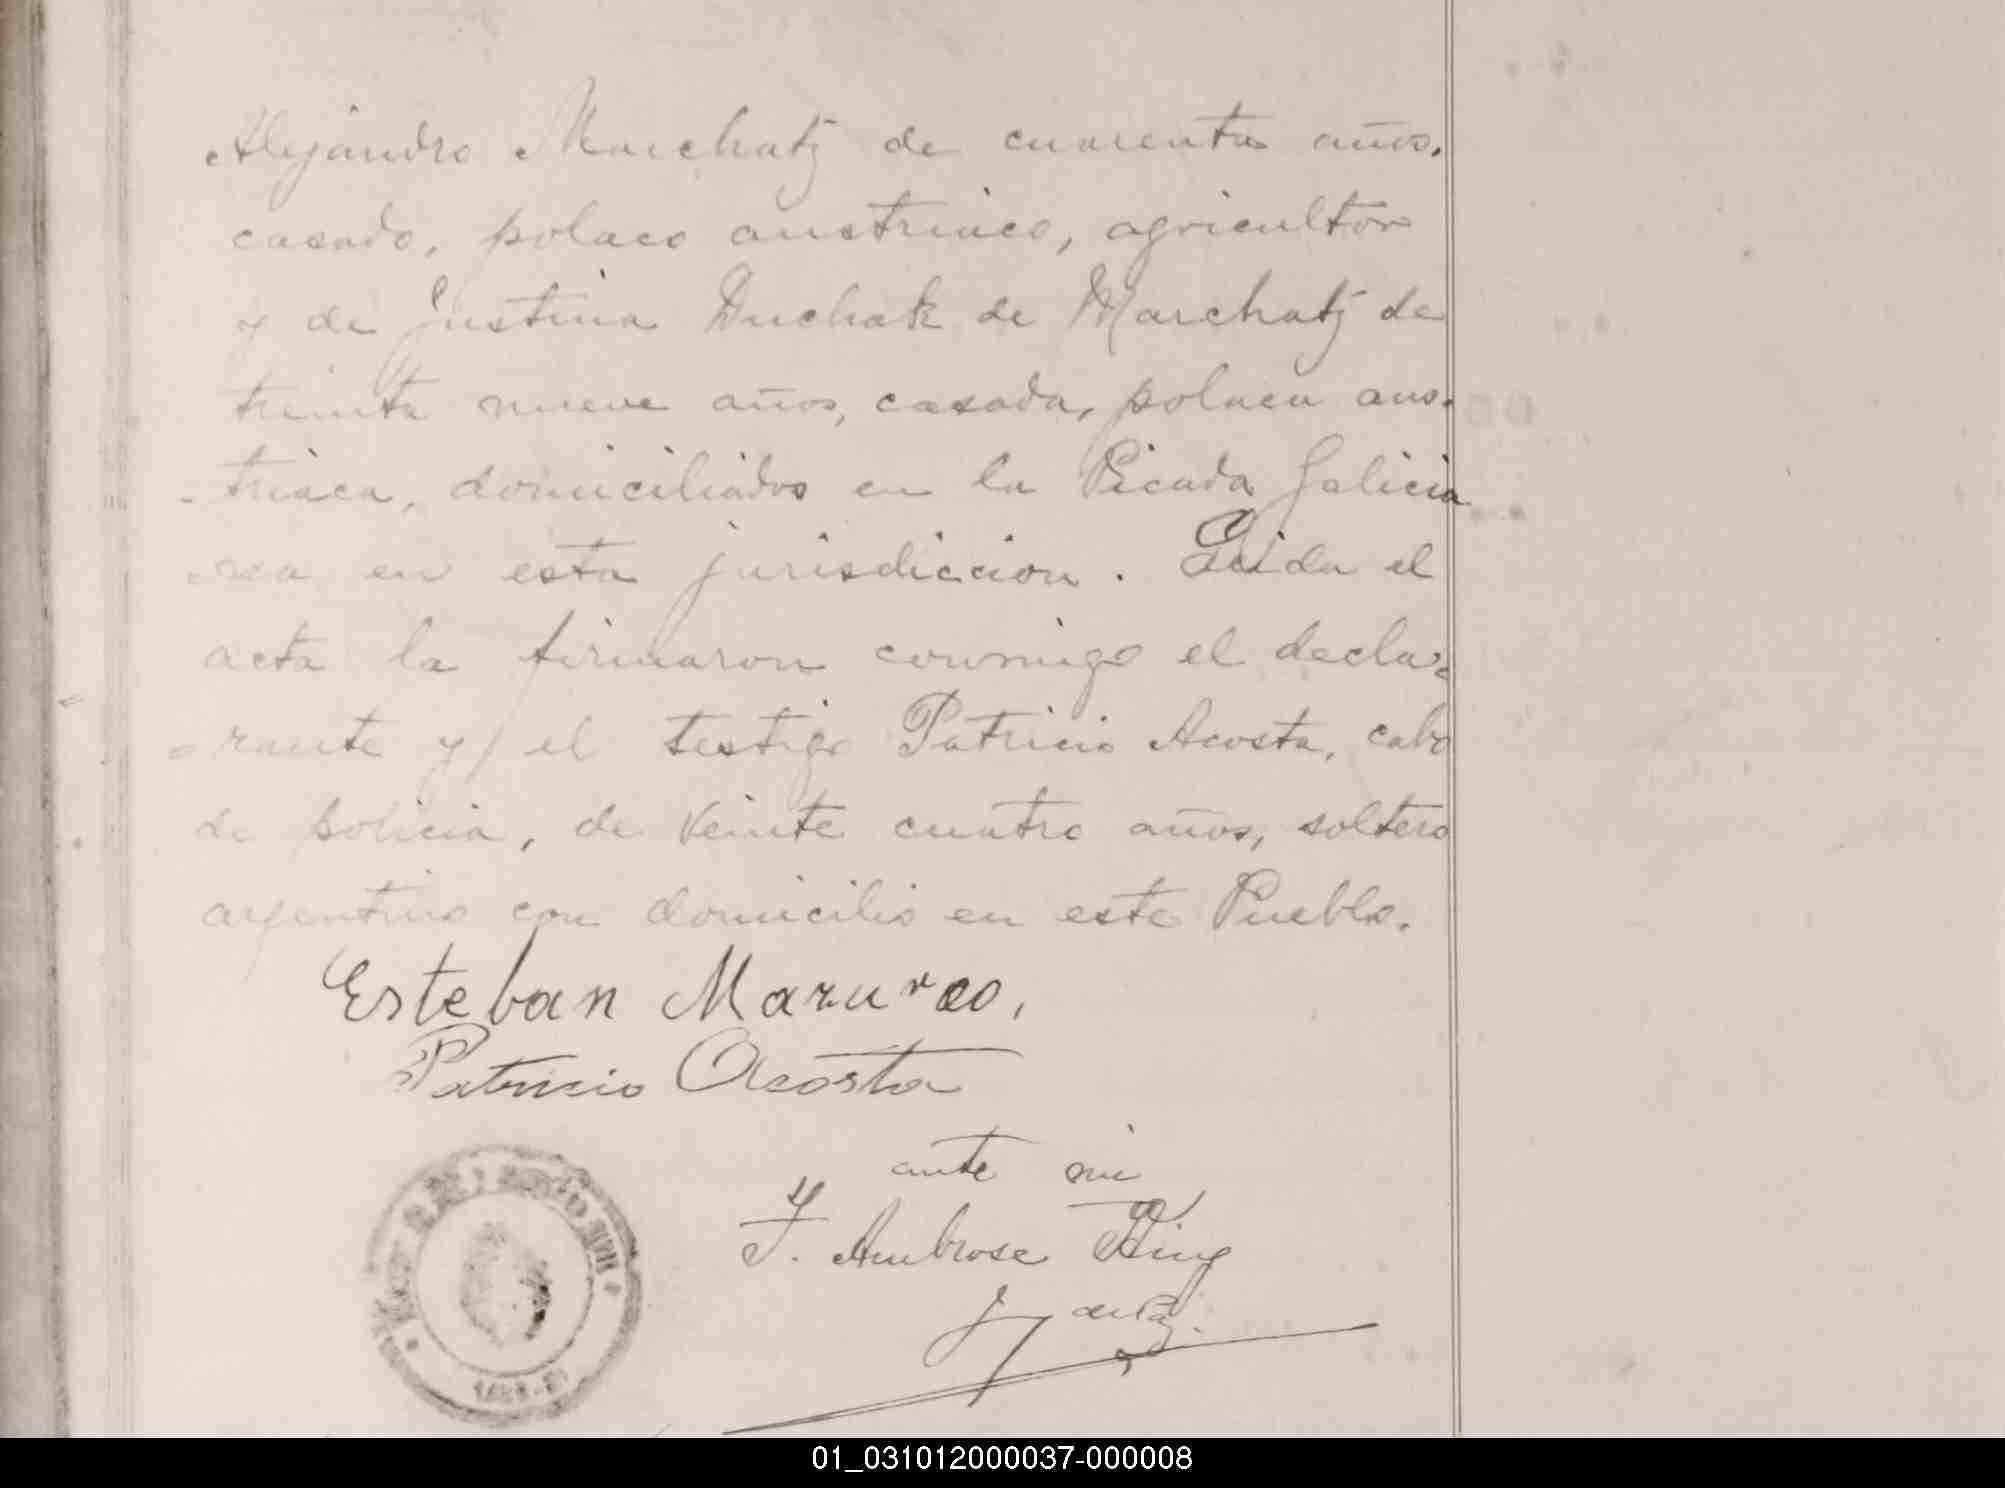 Alejandro Marchatz de cuarenta años.
casado, polaco austriaco, agricultor
y de Justina Duchak de Marchatz de
treinta nueve años, casada, polaca aus-
-triaca, domiciliados en la Picada Galicia
sea en esta jurisdiccion. Leida el
acta la firmaron conmigo el decla-
-rante y el testigo Patricio Acosta, cabo
de policia, de veinte cuatro años, soltero
argentino con domicilio en este Pueblo.
Esteban Mazurco,
Patricio Acosta
ante mi
F. Ambrose King
J de Paz.
01_031012000037-000008